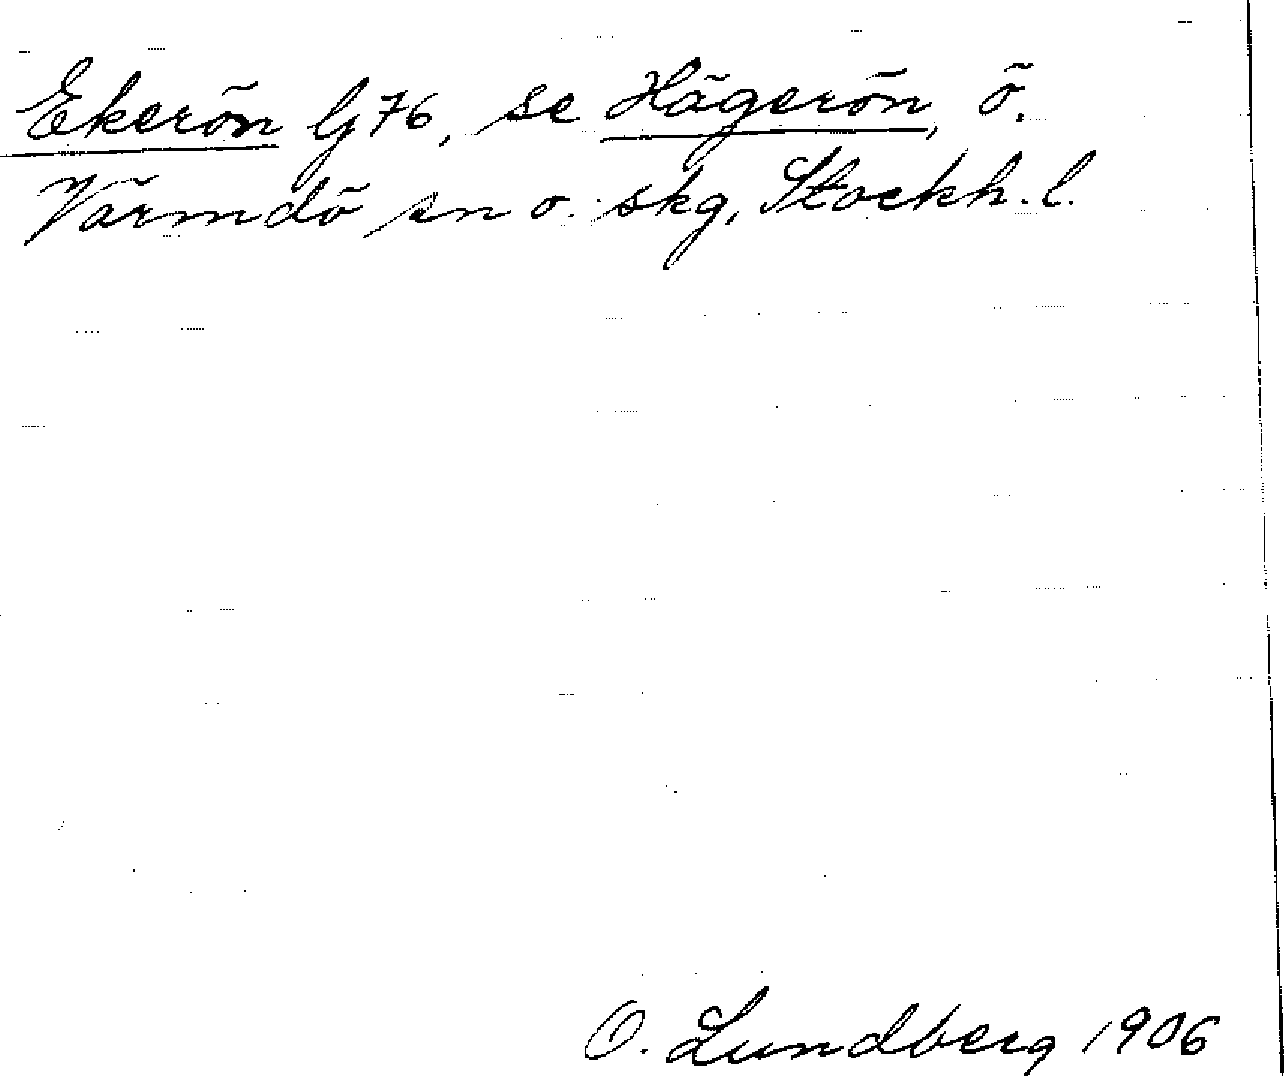 Ekerön G76, se Hägerön, ö.
Värmdö sn o. skg, Stockh. l.
O. Lundberg 1906